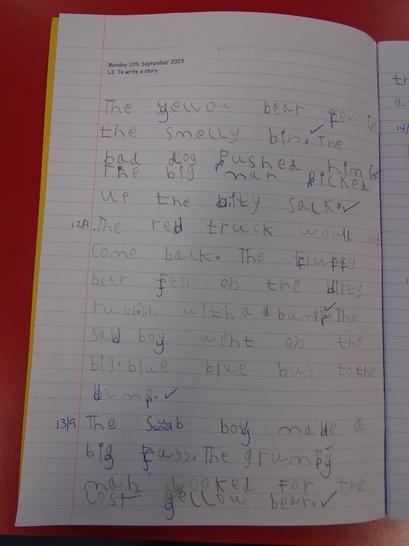 Monday 11th September 2023
LI: To write a story
The yellow bear fell in
the smelly bin. The
bad dog pushed him in
The big man picked
up the dity sack.
12/9 .The red truck would not
come back. The fluffy
bear fell on the dirty
rubbish with a d bump. The
sad boy went on the
big. blue blue bus to the
dump.
13/9 The boy made a
big fuss. The grumpy
man looked for the
Lost yellow bear.